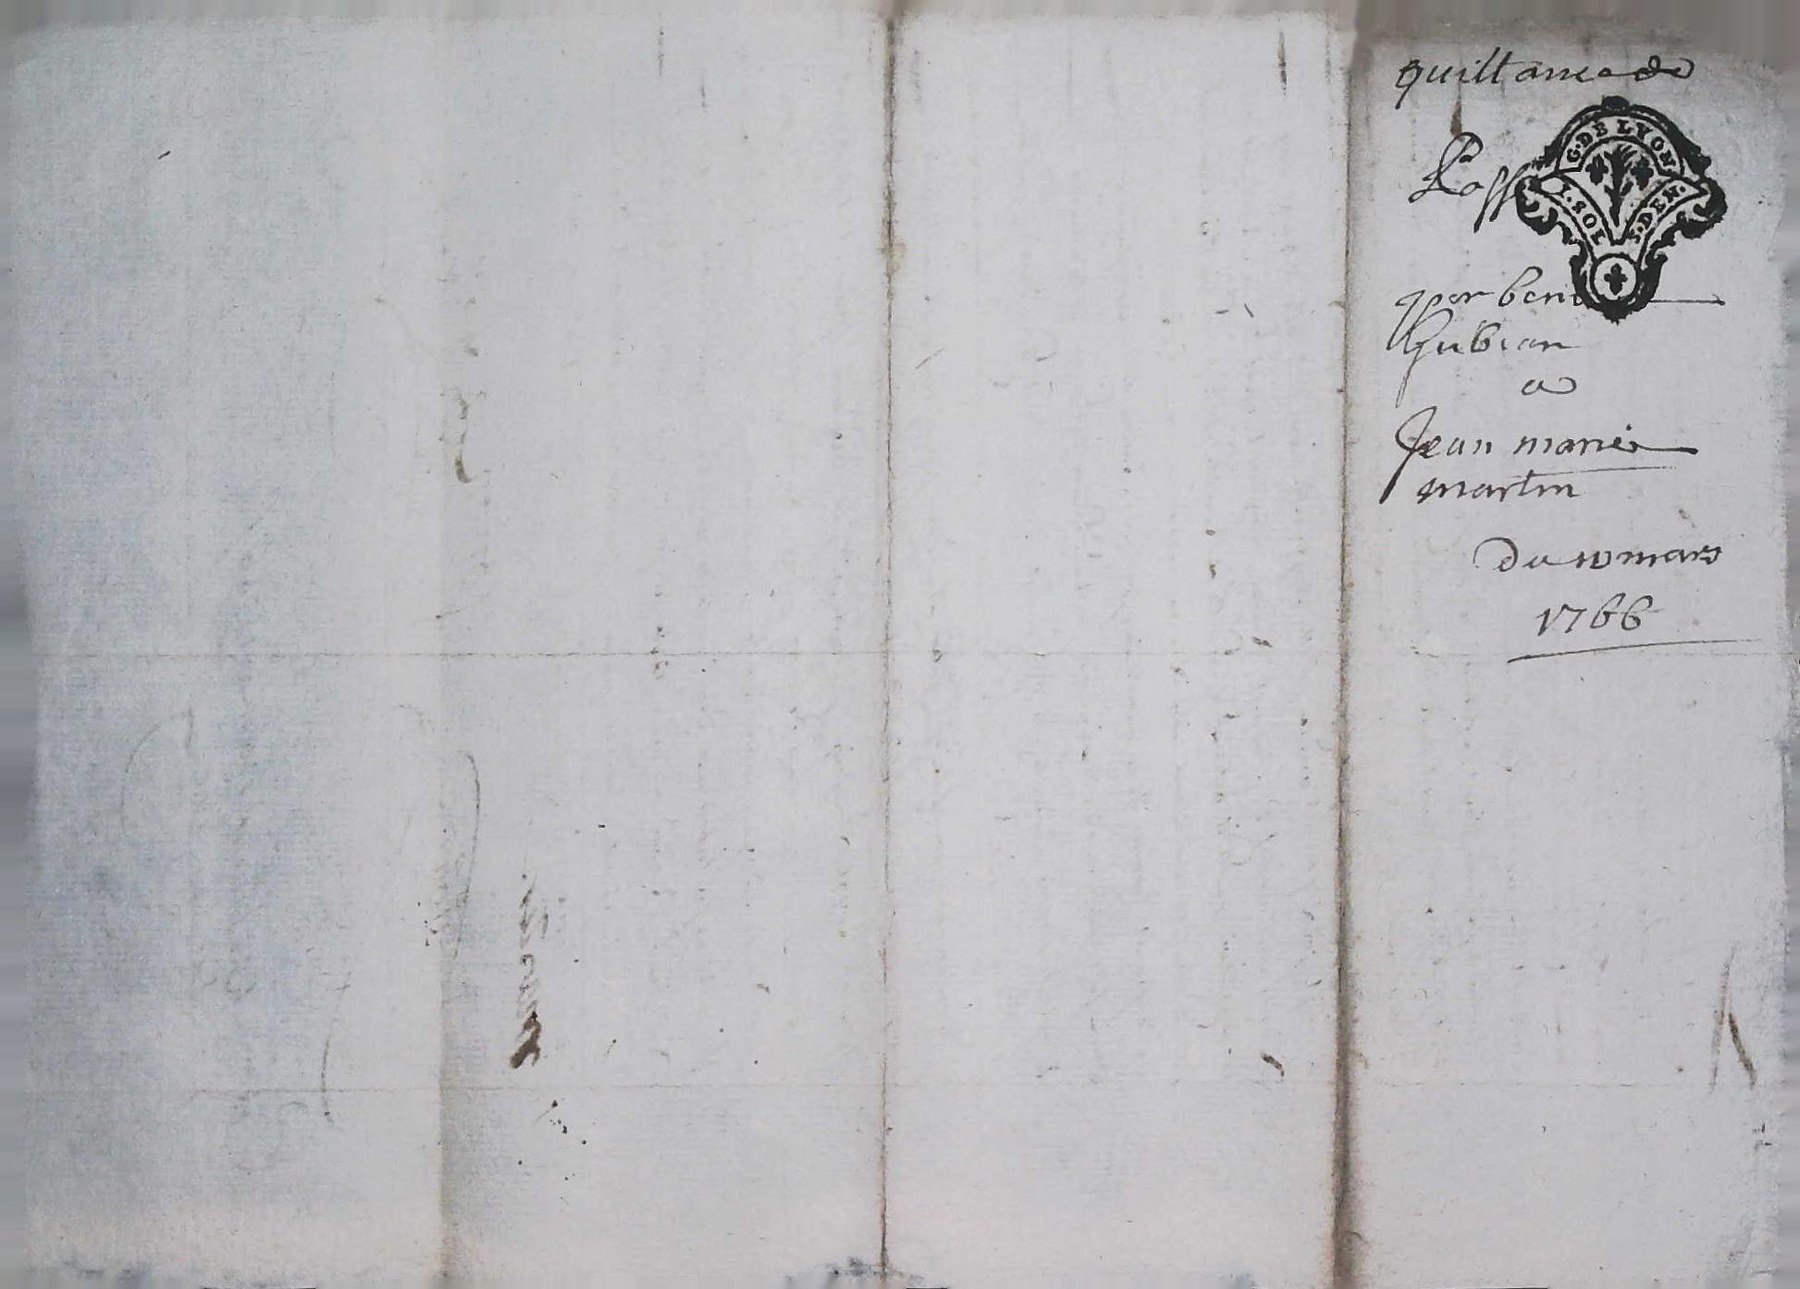 quittance de
G. DE LYON.
1. SOL 5. DEN.
par ben
Gubian
a
Jean marie
martin
Du 10 mars
1766